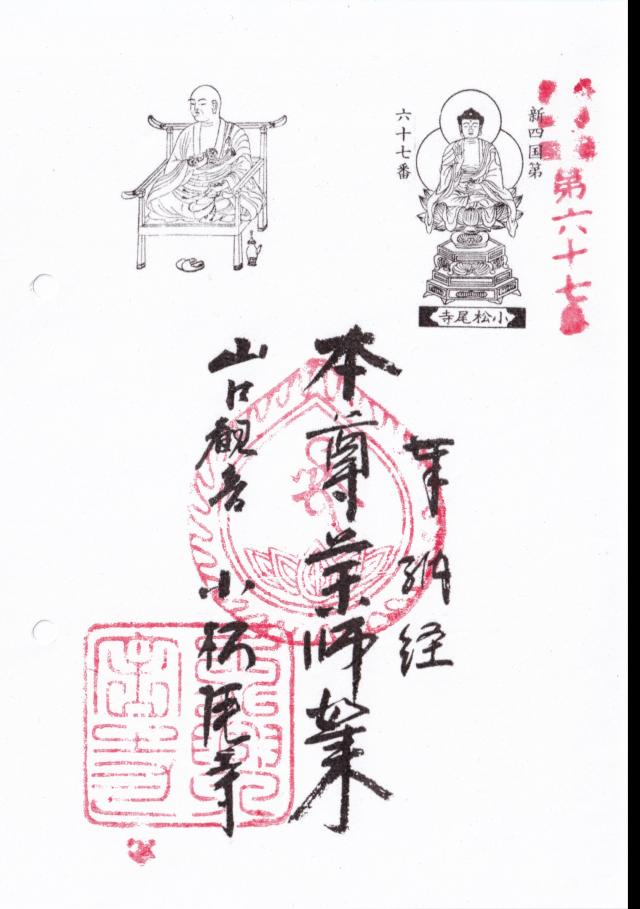 第六十七
新四国第
六十七番
小松尾寺
奉納経
本尊薬師如来
山口観音 小松尾寺